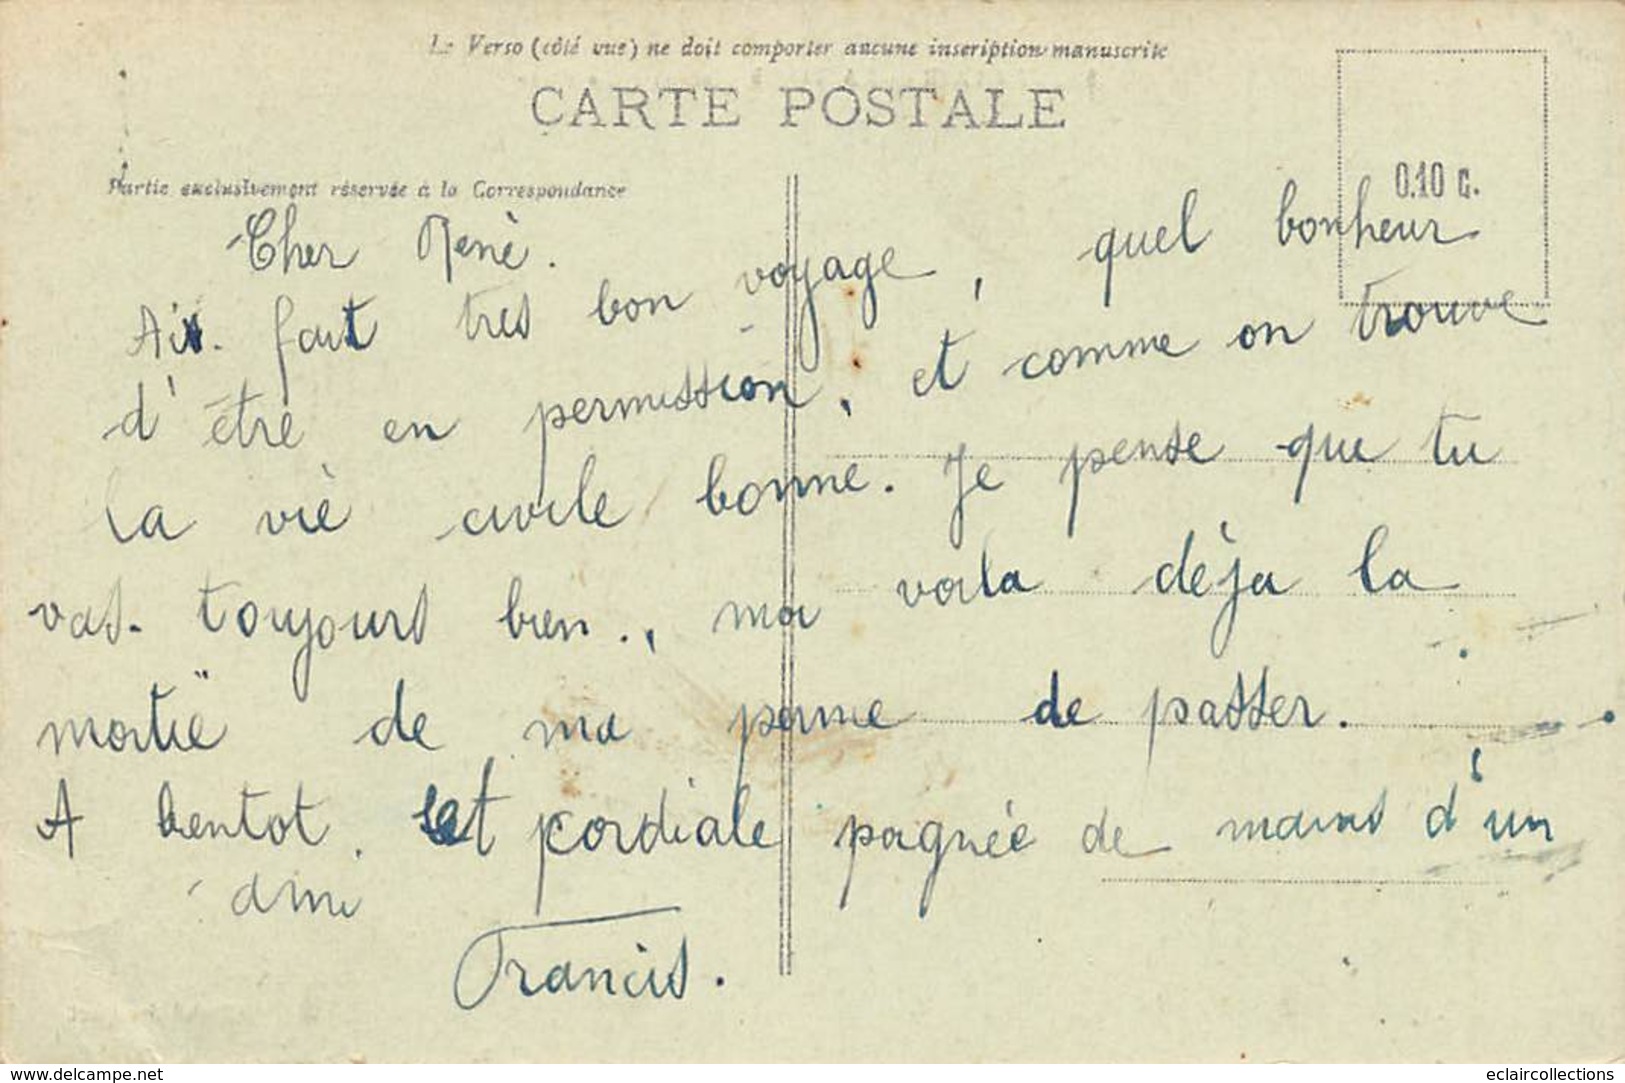 Le Verso (côté vue) ne doit comporter aucune inscription manuscrite
CARTE POSTALE
Partie exclusivement réservée à la Correspondance
0.10 c.
Cher Renè.
Ais. fait tres bon voyage, quel bonheur
d'être en permission, et comme on trouve
la vie civile bonne. Je pense que tu
vas. toujours bien., moi voila dèja la
moitie de ma perme de passer.
A bientot. et cordiale pognée de mains d'un
ami
Francis.
www.delcampe.net
eclaircollections